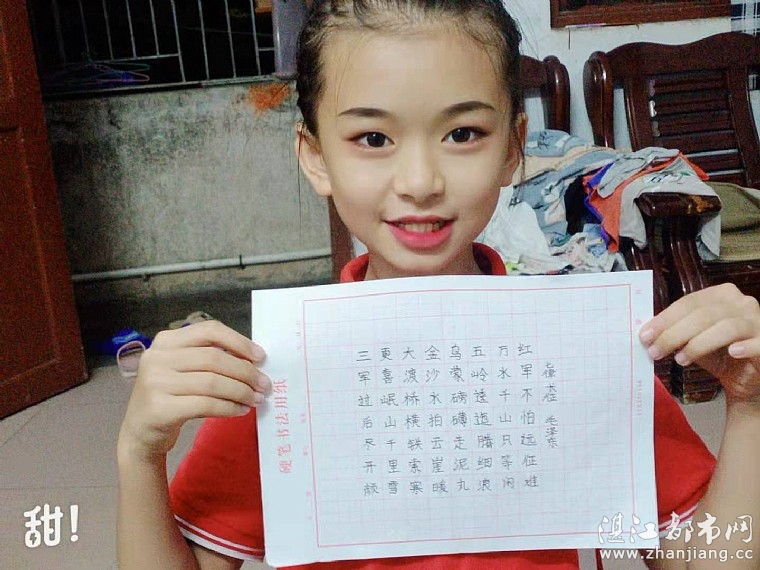 七律 长征 毛泽东
红军不怕远征难
万水千山只等闲
五岭逶迤腾细浪
乌蒙磅礴走泥丸
金沙水拍云崖暖
大渡桥横铁索寒
更喜岷山千里雪
三军过后尽开颜
硬笔书法用纸
甜!
湛江都市网
www.zhanjiang.cc